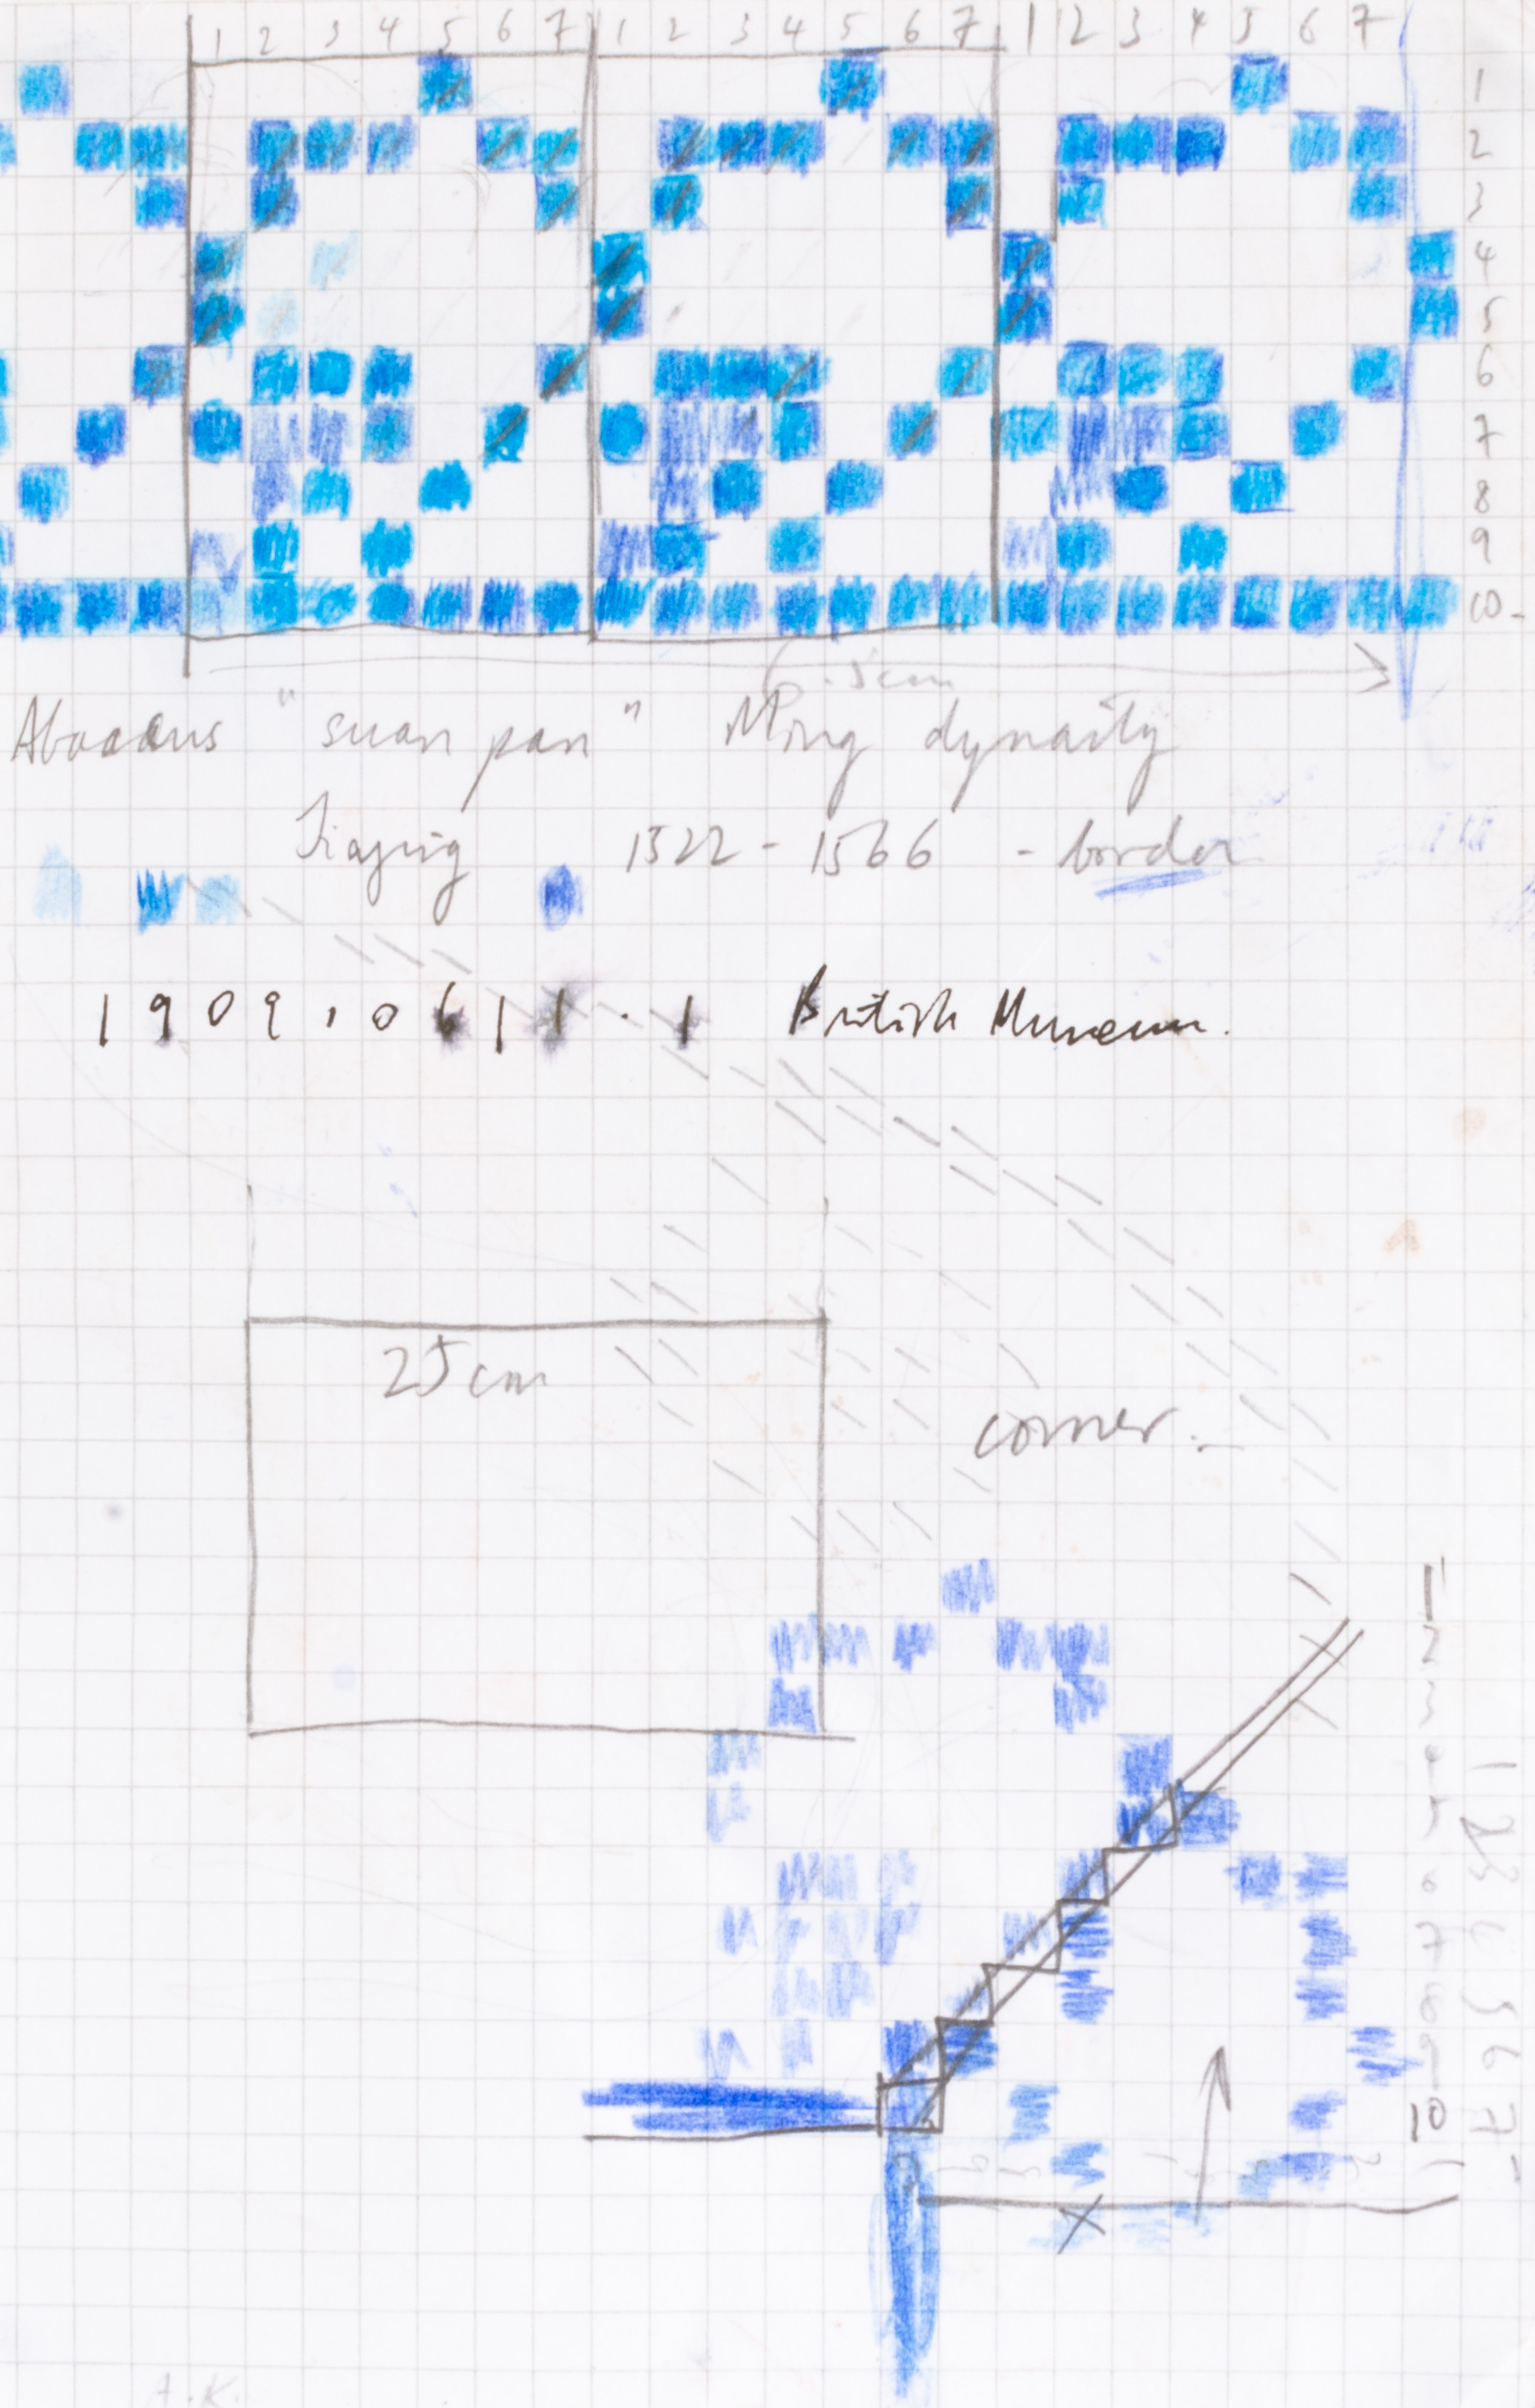 1 2 3 4 5 6 7 1 2 3 4 5 6 7 1 2 3 4 5 6 7
1
2
3
4
5
6
7
8
9
10-
6.5cm
Abacus "suan pan" Ming dynasty
Jiajing 1522 - 1566 - border
1909,0611.1 British Museum.
25 cm
corner.-
1
2
3
4
5
6
7
8
9
10
1 2 3 4 5 6 7
A.K.